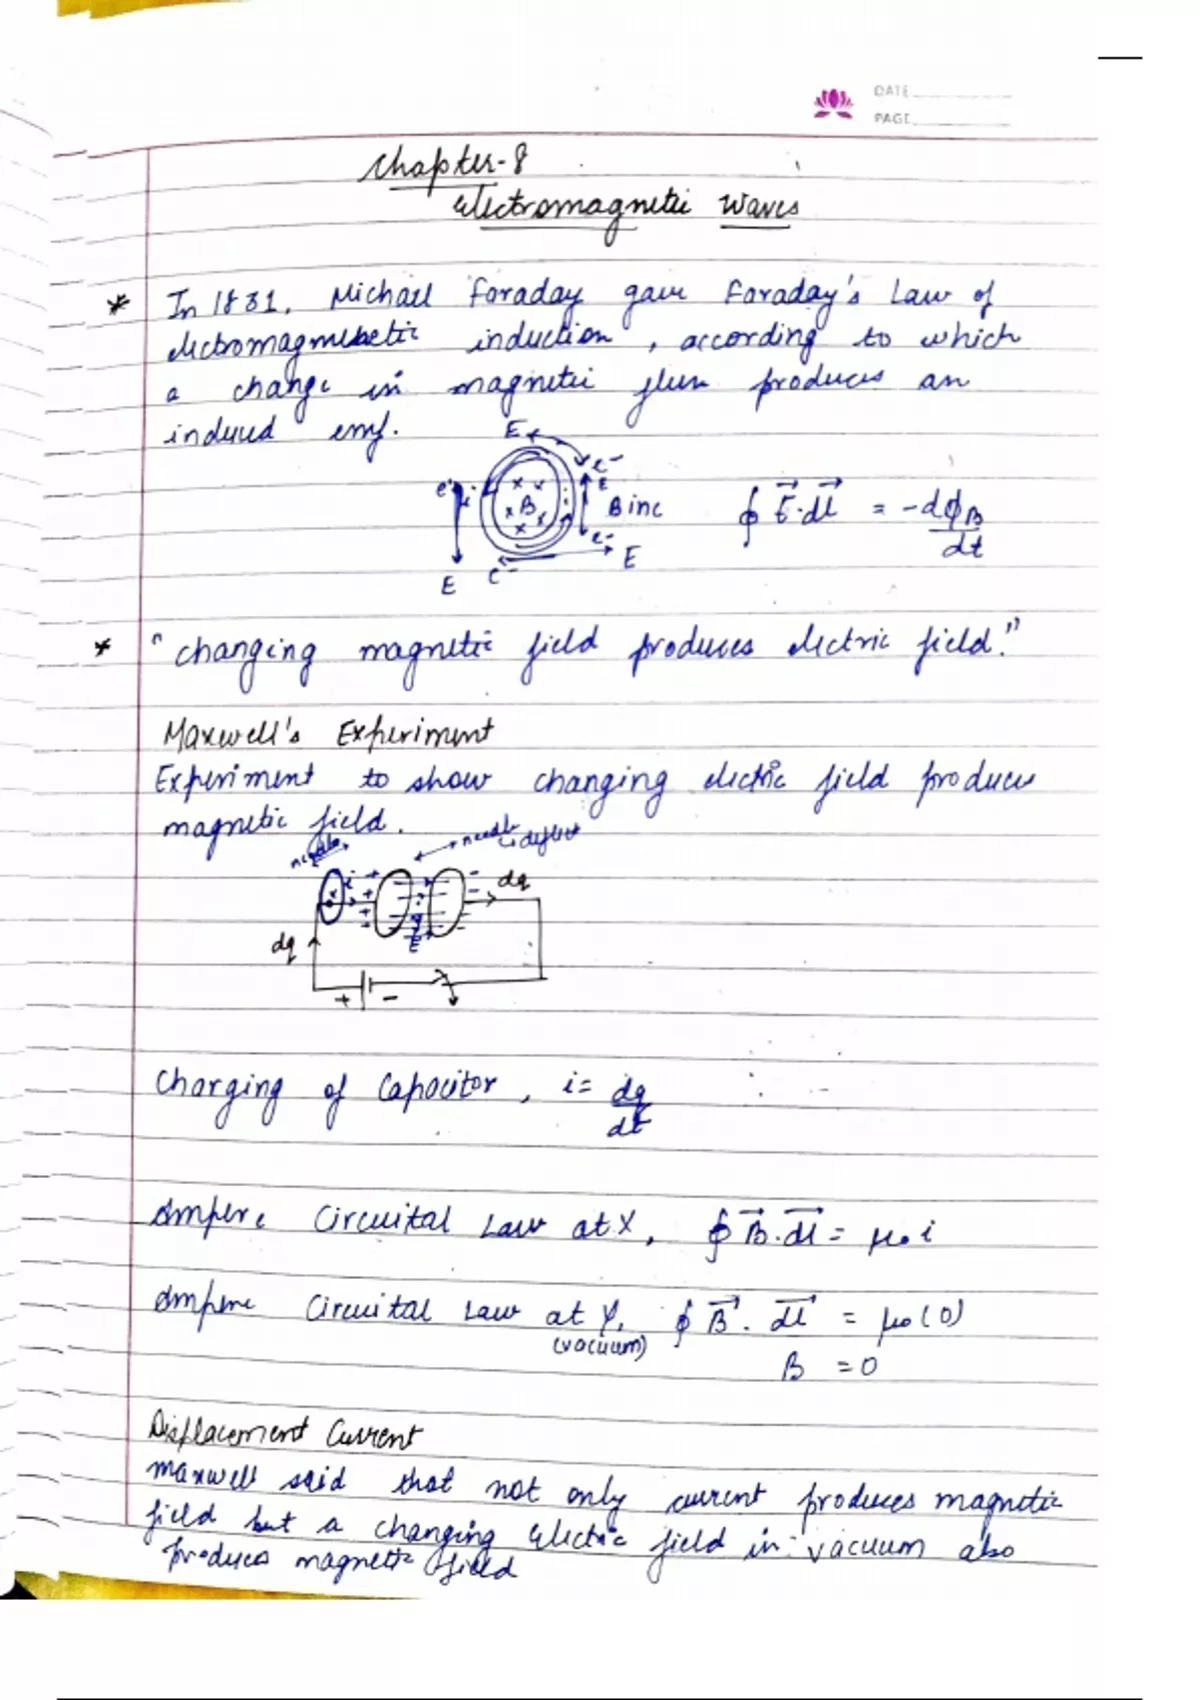 DATE
PAGE
Chapter-8
Electromagnetic Waves
* In 1831, Michael Faraday gave Faraday's Law of
induction, according to which
a change in magnetic flux produces an
induced emf.
E e-
e- i × × E
× B × B inc
× × e-
E e- E
∮ E⃗·dl⃗ = -dϕB
dt
* "Changing magnetic field produces electric field."
Maxwell's Experiment
Experiment to show changing electric field produces
magnetic field.
needle needle deflect
i + - dq
dq E
+ -
Charging of Capacitor, i = dq
dt
Ampere Circuital Law at X, ∮ B⃗·dl⃗ = μ₀ i
Ampere Circuital Law at Y, ∮ B⃗. dl⃗ = μ₀(0)
(vacuum) B = 0
Displacement Current
Maxwell said that not only current produces magnetic
field but a changing electric field in vacuum also
produces magnetic field